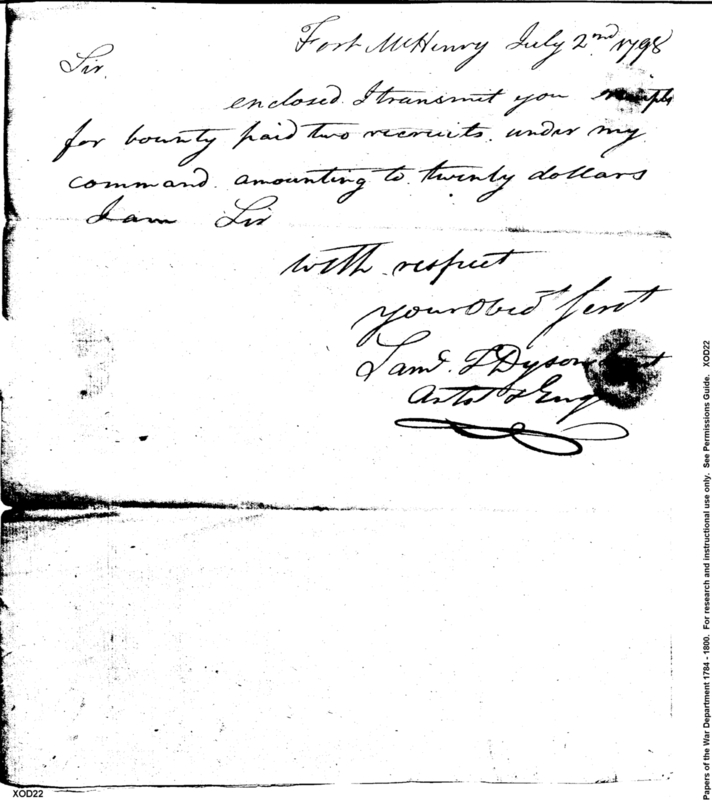 Fort McHenry July 2nd 1798
Sir.
enclosed I transmit you
for bounty paid two recruits under my
command amounting to twenty dollars
I am Sir
with respect
your Obed Servt
Saml. T Dyson
Artis & Eng
XOD22
Papers of the War Department 1784 - 1800. For research and instructional use only. See Permissions Guide. XOD22